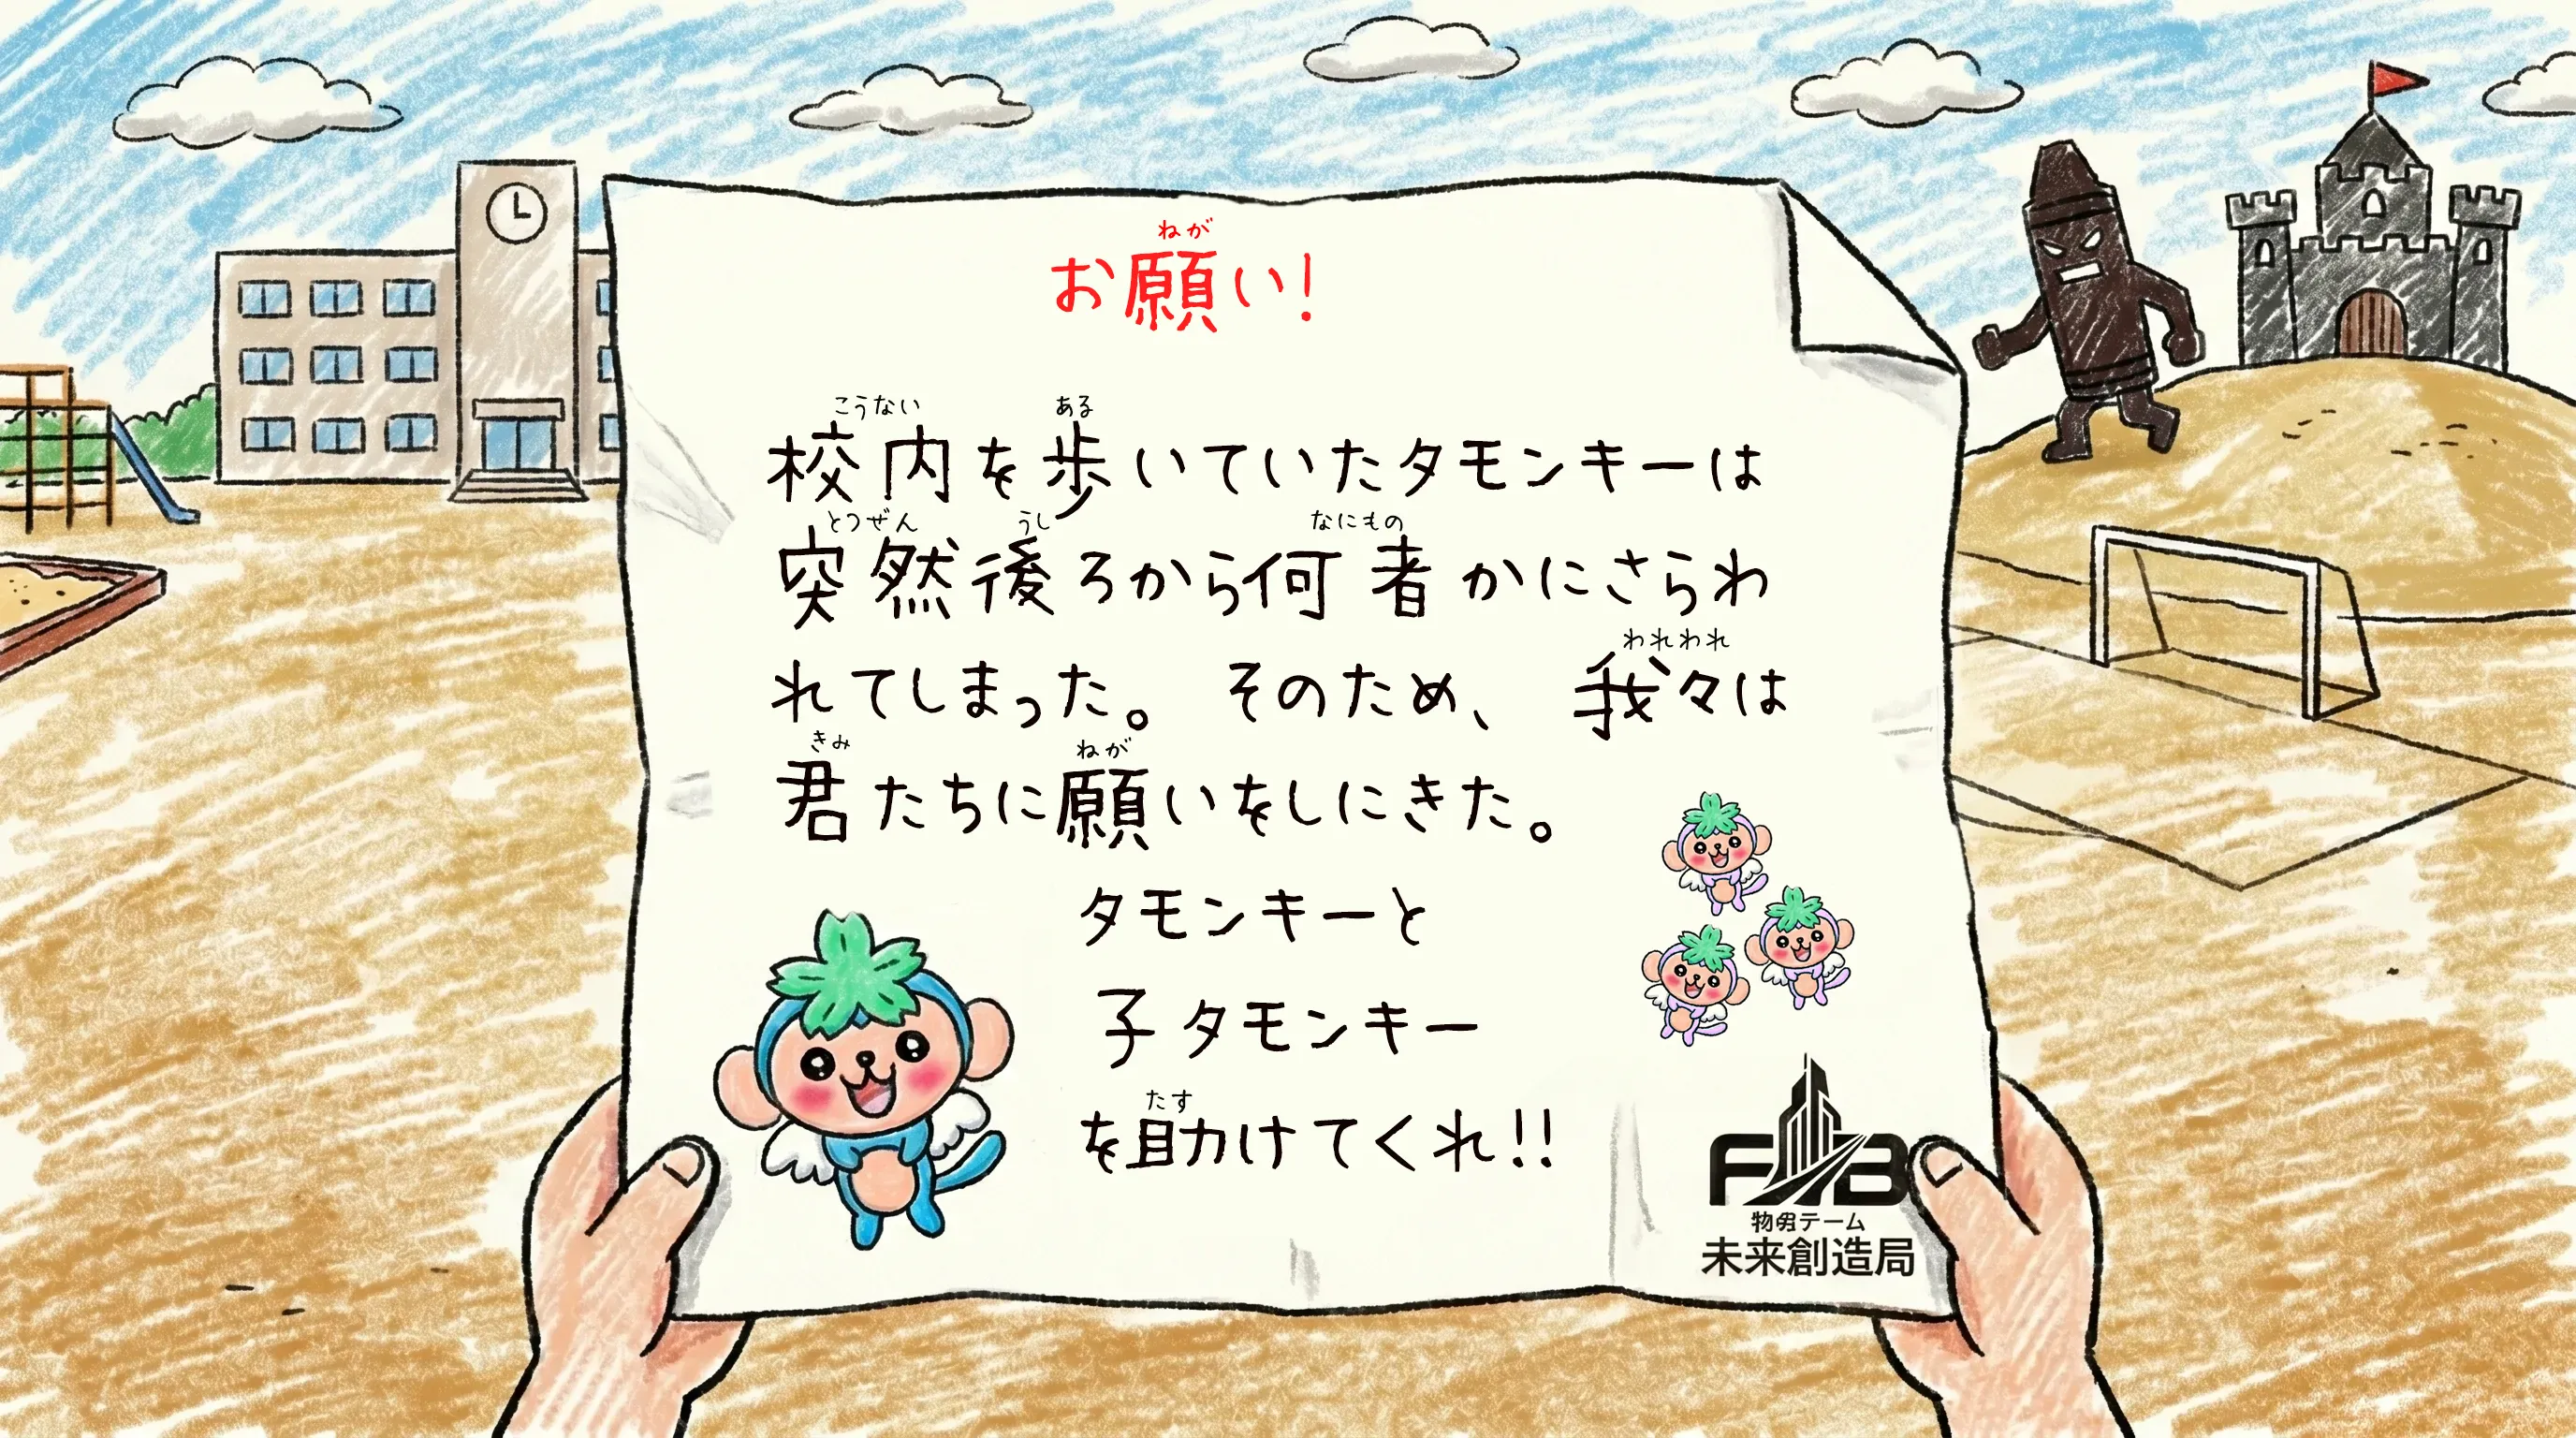 お願い!
校内を歩いていたタモンキーは
突然後ろから何者かにさらわ
れてしまった。 そのため、 我々は
君たちに願いをしにきた。
タモンキーと
子タモンキー
を助けてくれ!!
ねが
こうない
ある
とつぜん
うし
なにもの
われわれ
きみ
ねが
たす
チーム
未来創造局